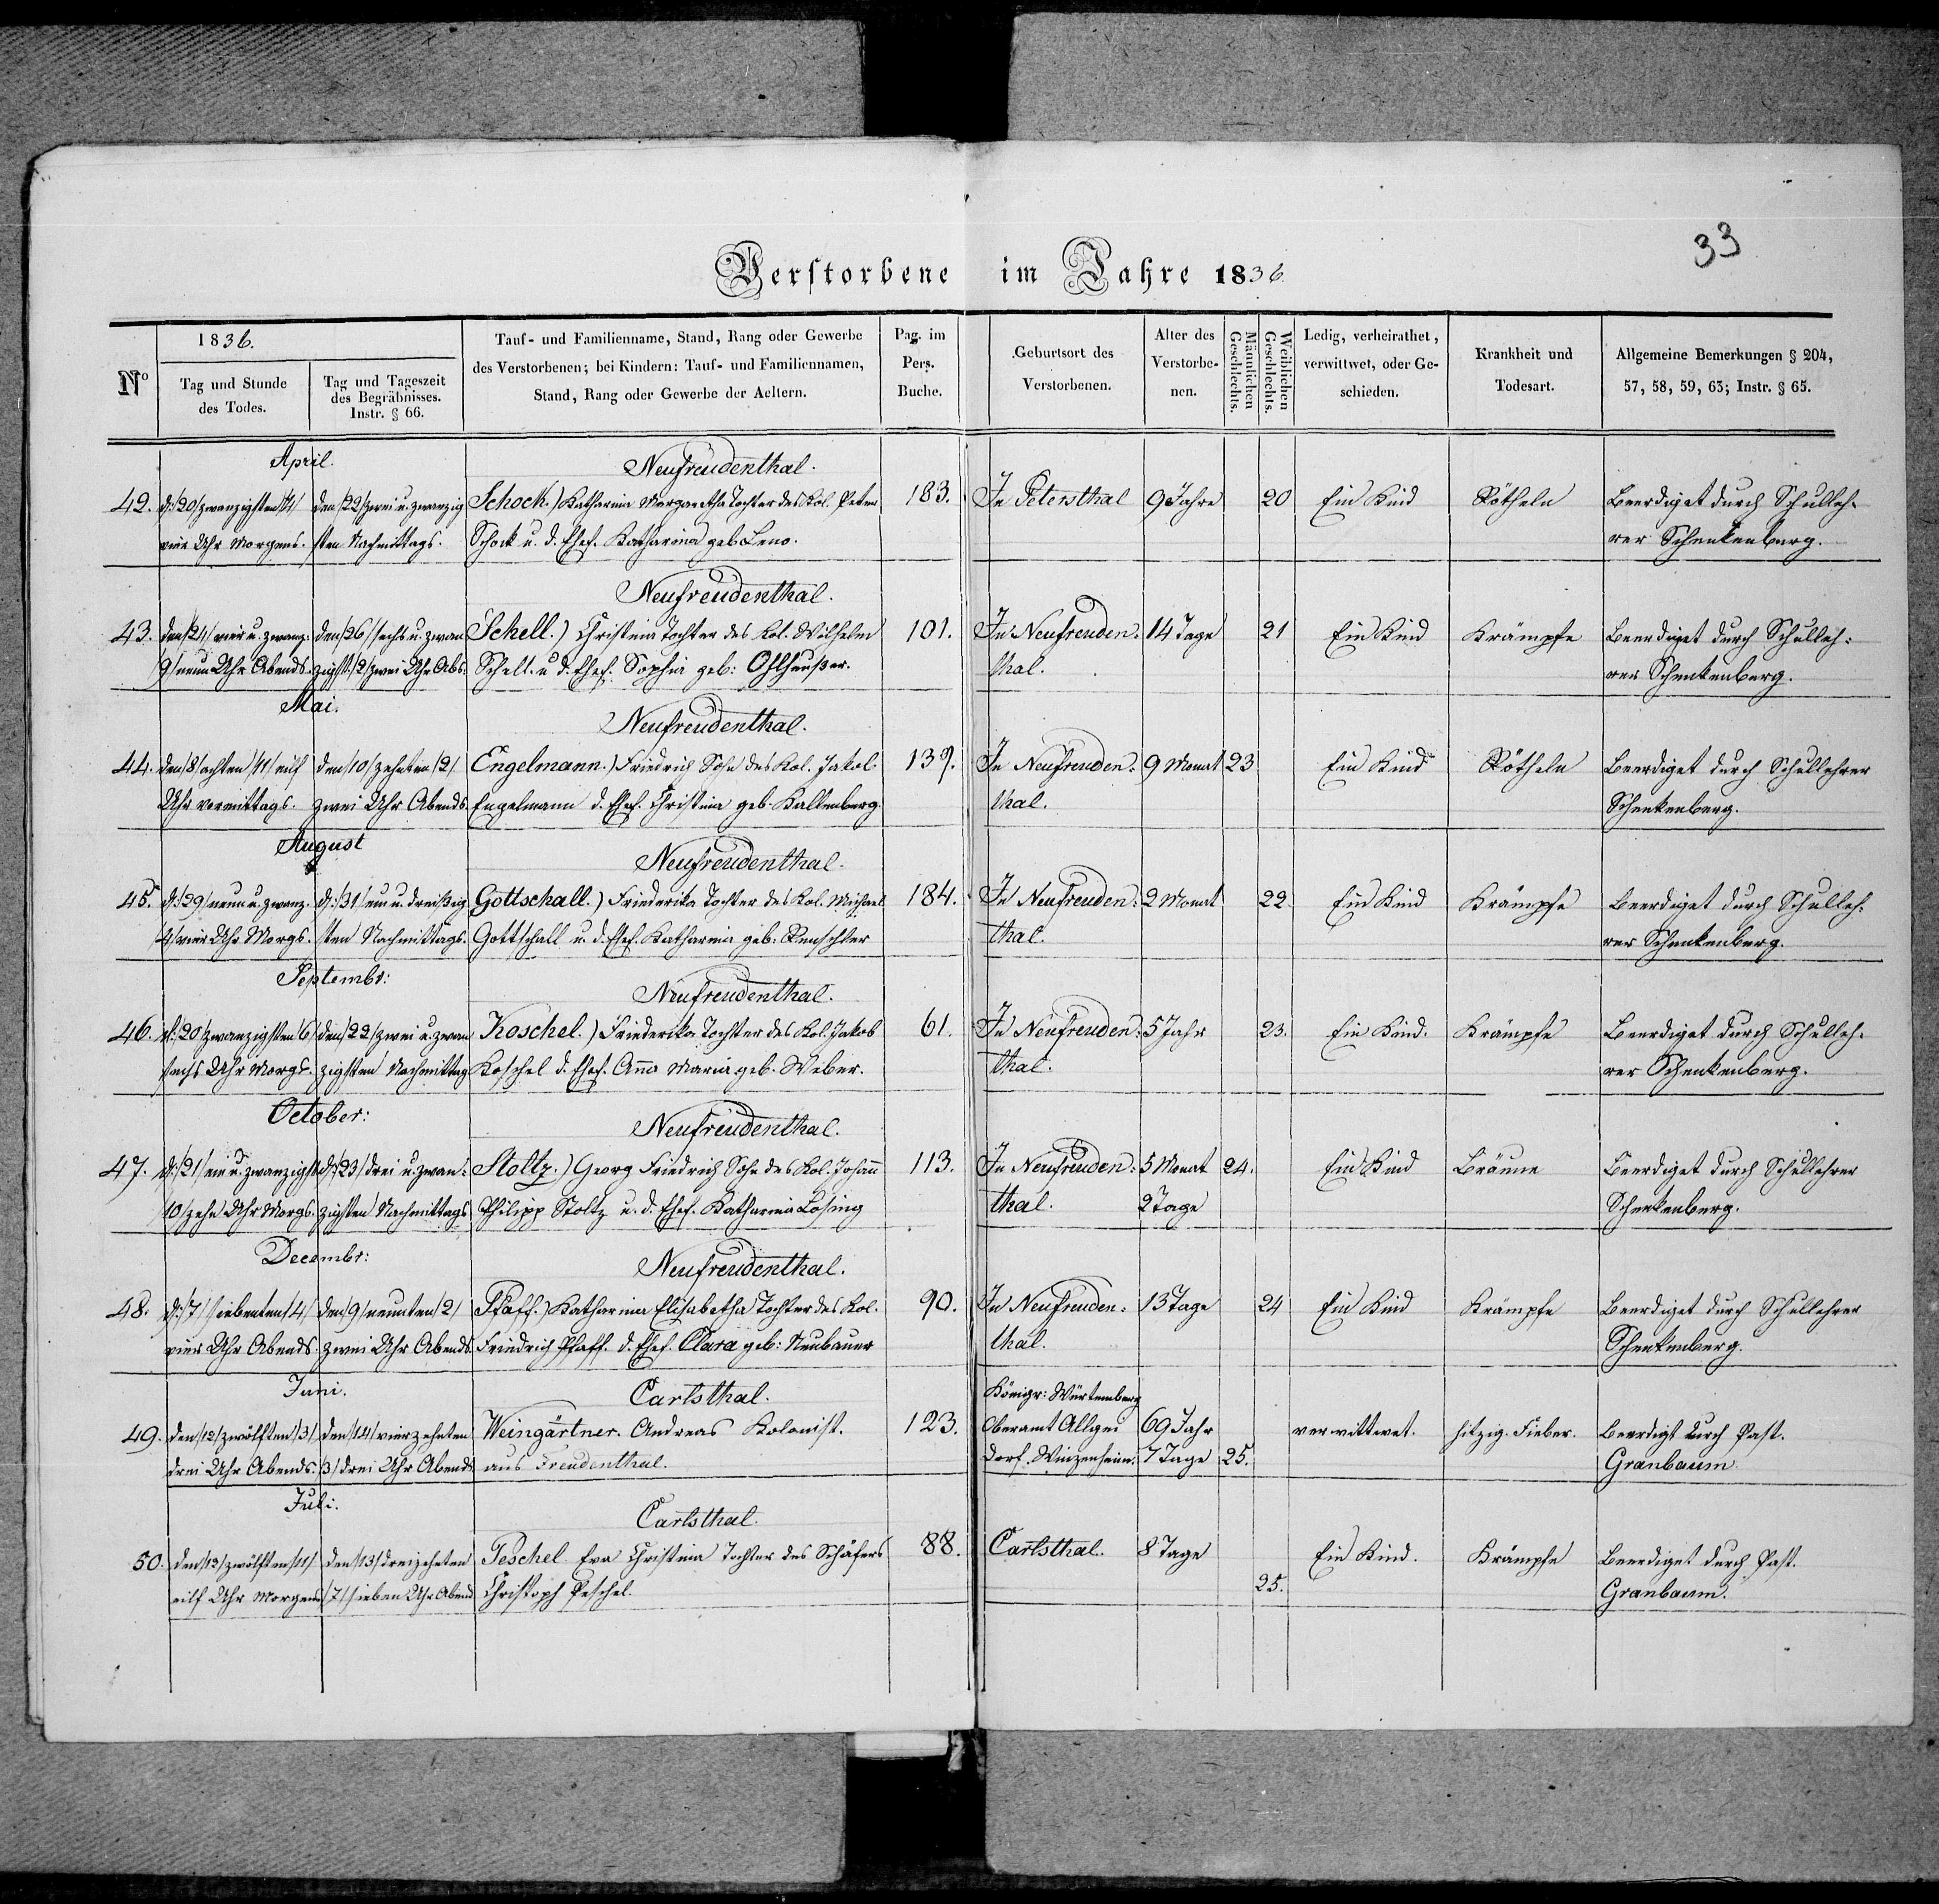 33
Verstorbene im Jahre 1836.
No
1836.
Tag und Stunde
des Todes.
Tag und Tageszeit
des Begräbnisses.
Instr. § 66.
Tauf- und Familienname, Stand, Rang oder Gewerbe
des Verstorbenen; bei Kindern: Tauf- und Familiennamen,
Stand, Rang oder Gewerbe der Aeltern.
Pag. im
Pers.
Buche.
Geburtsort des
Verstorbenen.
Alter des
Verstorbe-
nen.
Männlichen
Geschlechts.
Weiblichen
Geschlechts.
Ledig, verheirathet,
verwittwet, oder Ge-
schieden.
Krankheit und
Todesart.
Allgemeine Bemerkungen § 204,
57, 58, 59, 63; Instr. § 65.
April. Neufreudenthal.
42. d: /20/ zwanzigsten /4/ den /22/ zwei u. zwanzig Schock.) Katharina Margaretha Tochter des Kol. Peter 183. In Petersthal 9 Jahre 20 Ein Kind Rötheln Beerdiget durch Schulleh-
vier Uhr Morgens. sten Nachmittags. Schock u. d. Ehef. Katharina geb. Leno. rer Schenkenberg.
Neufreudenthal.
43. den /24/ vier u. zwanz: den /26/ sechs u. zwan Schell.) Christina Tochter des Kol. Wilhelm 101. In Neufreuden: 14 Tage 21 Ein Kind Krämpfe Beerdiget durch Schulleh:
9/ neun Uhr Abends. zigst. /2/ zwei Uhr Abds: Schell. u. d. Ehef. Sophia geb: Ohlhaußer. thal. rer Schenkenberg.
Mai. Neufreudenthal.
44. den /8/ achten /11/ eilf den /10/ zehnten /2/ Engelmann.) Friedrich Sohn des Kol. Jakob 139. In Neufreuden: 9 Monat 23 Ein Kind Rötheln Beerdiget durch Schullehrer
Uhr vormittags. zwei Uhr Abends. Engelmann d. Ehef. Christina geb. Kaltenberg. thal. Schenkenberg.
August Neufreudenthal.
45. d: /29/ neun u. zwanz. d: /31/ ein u. dreißig Gottschall.) Friederika Tochter des Kol. Michael 184. In Neufreuden: 2 Monat 22. Ein Kind Krämpfe Beerdiget durch Schulleh-
4/ vier Uhr Morgs. sten Nachmittags. Gottschall u. d. Ehef. Katharina geb. Renschler thal. rer Schenkenberg.
Septembr: Neufreudenthal.
46. d: /20/ zwanzigsten /6/ den /22/ zwei u. zwan Koschel.) Friederika Tochter des Kol. Jakob 61. In Neufreuden: 5 Jahr 23. Ein Kind. Krämpfe Beerdiget durch Schulleh-
sechs Uhr Morgs. zigsten Nachmittag Koschel d. Ehef. Anna Maria geb. Weber. thal. rer Schenkenberg.
October: Neufreudenthal.
47. d: /21/ ein u. zwanzigst d: /23/ drei u. zwan: Stoltz.) Georg Friedrich Sohn des Kol. Johann 113. In Neufreuden: 5 Monat 24. Ein Kind Bräune Beerdiget durch Schullehrer
10/ zehn Uhr Morgs. zigsten Nachmittags Philipp Stoltz u. d. Ehef. Katharina Losing thal. 2 Tage Schenkenberg.
Decembr: Neufreudenthal.
48. d: /7/ siebenten /4/ den /9/ neunten /2/ Pfaff.) Katharina Elisabetha Tochter des Kol. 90. In Neufreuden: 13 Tage 24 Ein Kind Krämpfe Beerdiget durch Schullehrer
vier Uhr Abends. zwei Uhr Abends Friedrich Pfaff. d. Ehef. Clara geb: Neubauer thal. Schenkenberg.
Juni. Carlsthal. Königr: Würtemberg
49. den /12/ zwölften /3/ den /14/ vierzehnten Weingärtner. Andreas Kolonist. 123. Oberamt 69 Jahr verwittwet. hitzig. Fieber. Beerdigt durch Past.
drei Uhr Abends. /3/ drei Uhr Abends aus Freudenthal. Dorf. Winzenheim. 7 Tage 25. Granbaum
Juli. Carlsthal.
50. den /12/ zwölften /11/ den /13/ dreizehnten Peschel Eva Christina Tochter des Schäfers 88. Carlsthal. 8 Tage Ein Kind. Krämpfe Beerdiget durch Past.
eilf Uhr Morgens /7/ sieben Uhr Abend Christoph Peschel. 25. Granbaum.